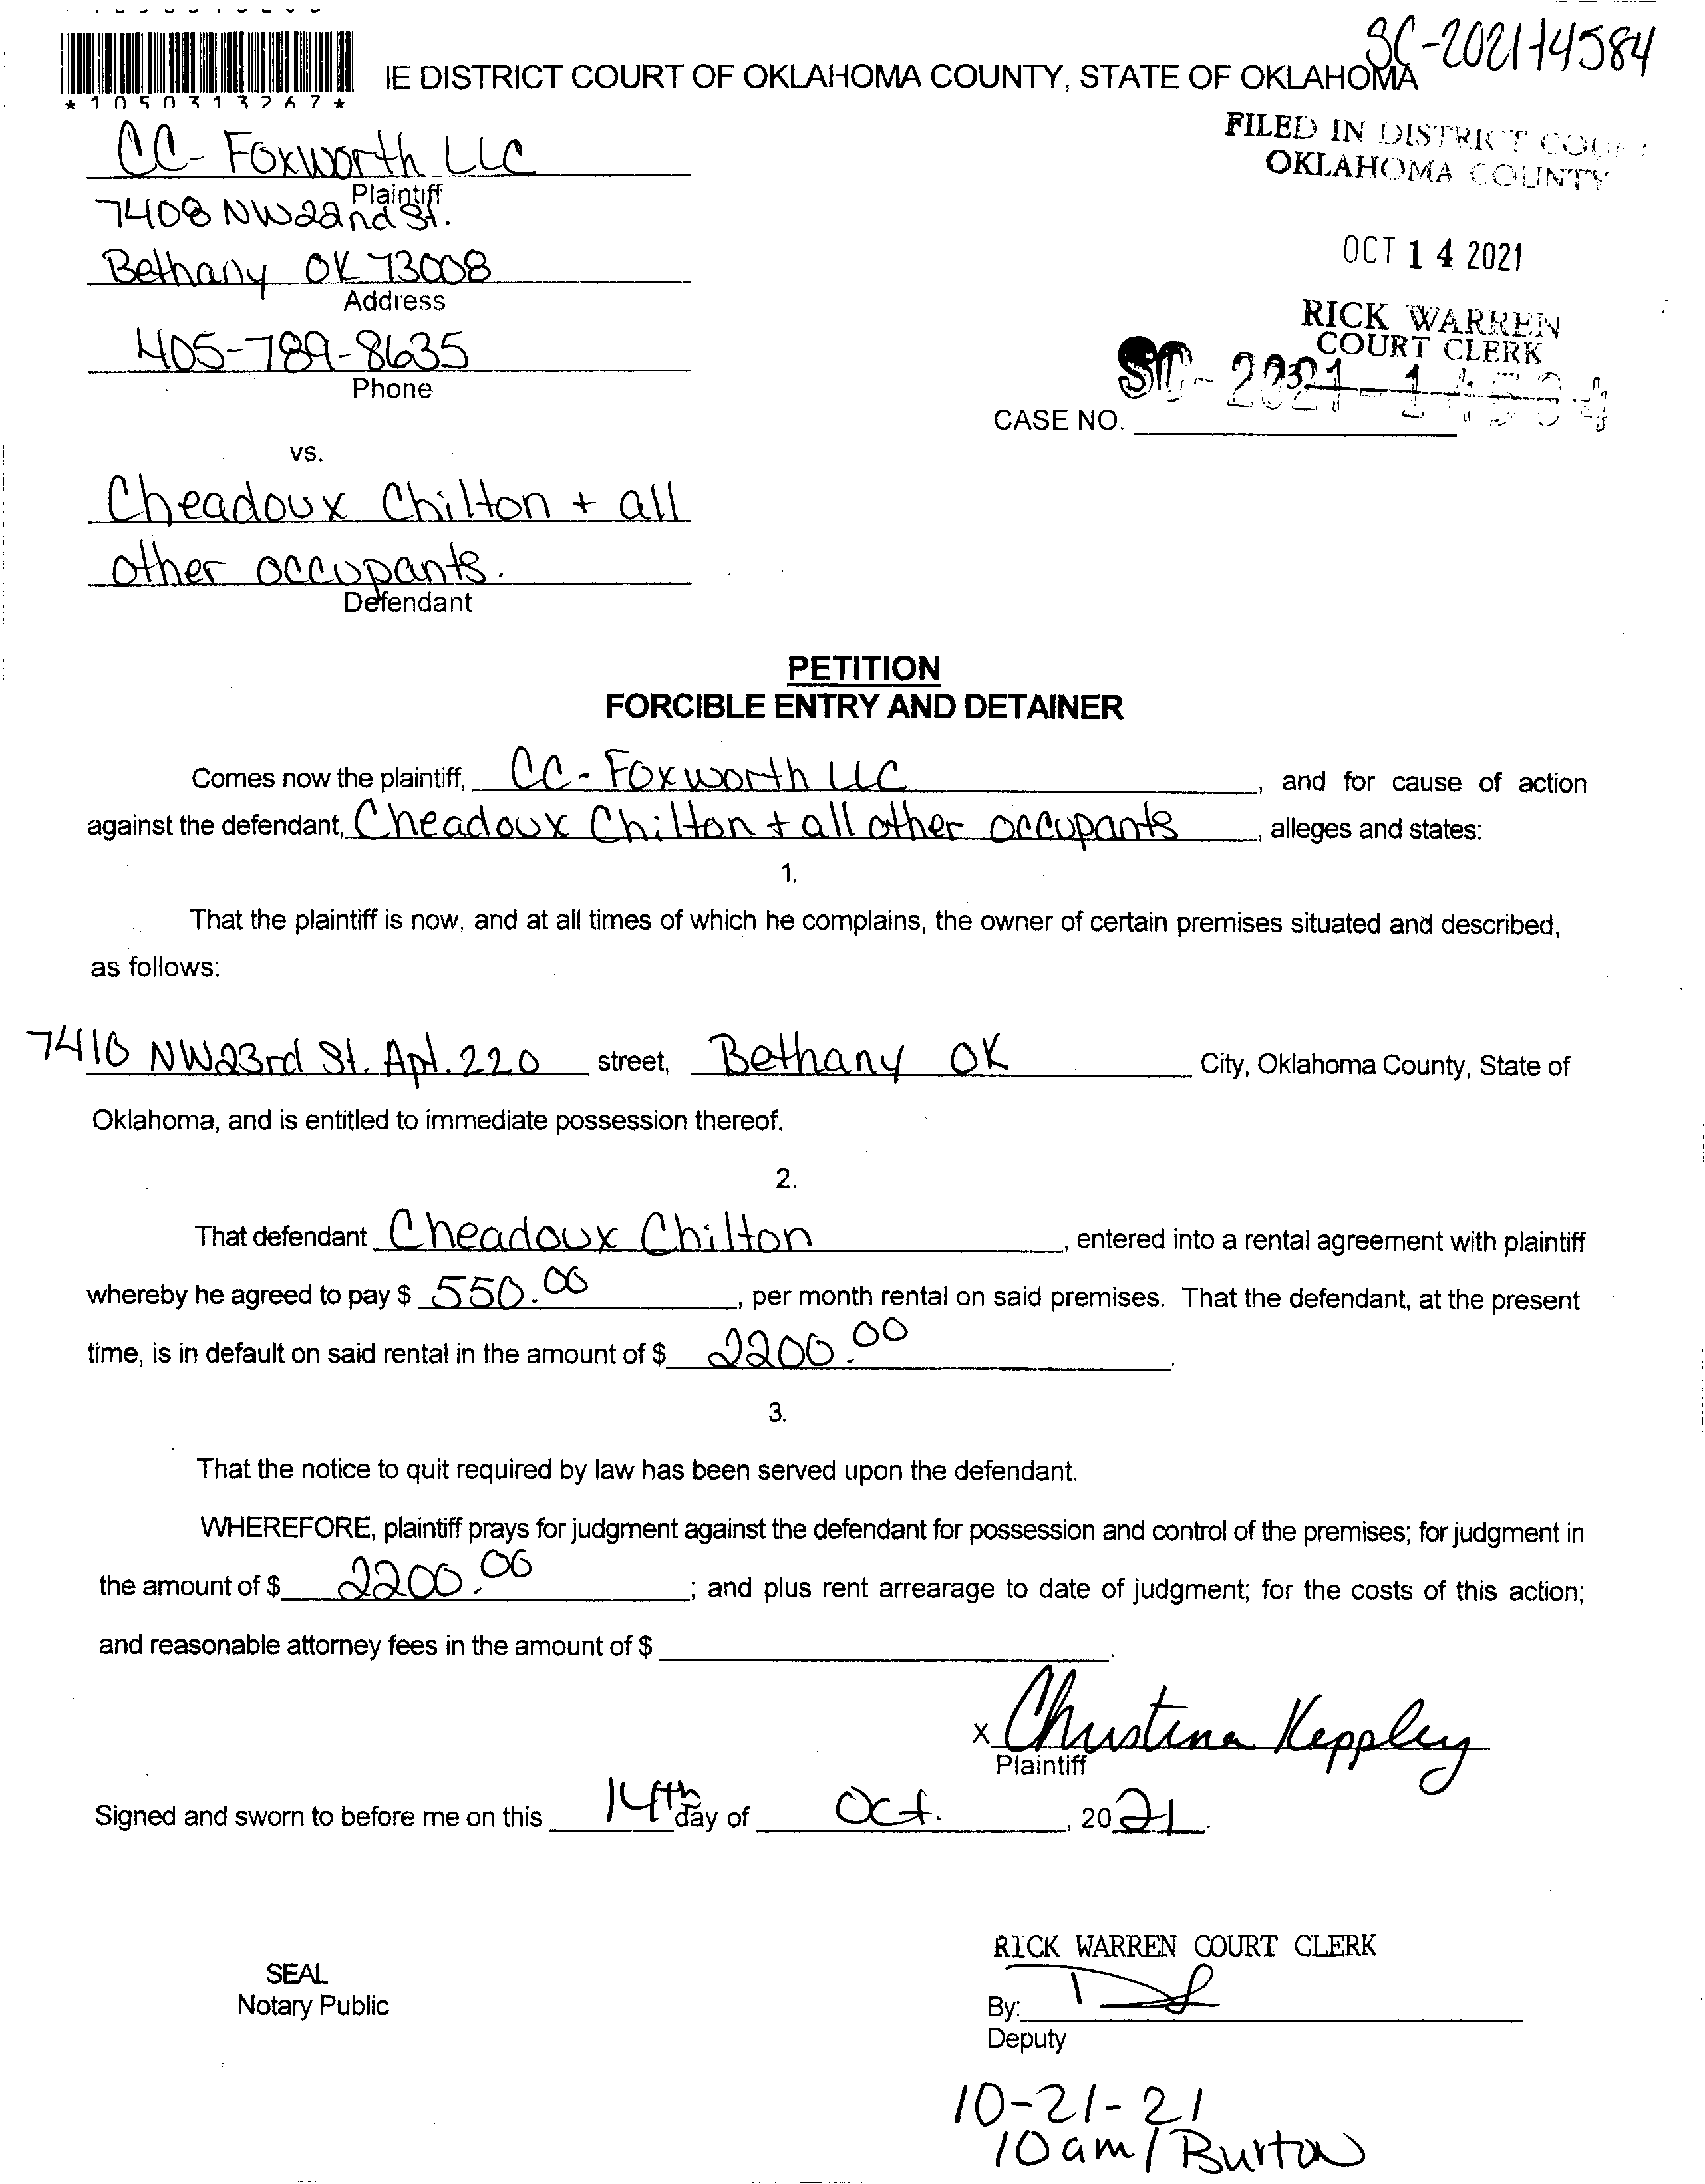 SC-2021-14584
IE DISTRICT COURT OF OKLAHOMA COUNTY, STATE OF OKLAHOMA
*1050313267*
FILED IN DISTRICT COURT
OKLAHOMA COUNTY
OCT 14 2021
RICK WARREN
COURT CLERK
CC-Foxworth LLC
Plaintiff
7408 NW 22nd St.
Bethany OK 73008
Address
405-789-8635
Phone
CASE NO. SC-2021-14584
vs.
Cheadoux Chilton + all
other occupants.
Defendant
PETITION
FORCIBLE ENTRY AND DETAINER
Comes now the plaintiff, CC-Foxworth LLC, and for cause of action
against the defendant, Cheadoux Chilton + all other occupants, alleges and states:
1.
That the plaintiff is now, and at all times of which he complains, the owner of certain premises situated and described,
as follows:
7410 NW 23rd St. Apt. 220 street, Bethany OK City, Oklahoma County, State of
Oklahoma, and is entitled to immediate possession thereof.
2.
That defendant Cheadoux Chilton, entered into a rental agreement with plaintiff
whereby he agreed to pay $ 550.00, per month rental on said premises. That the defendant, at the present
time, is in default on said rental in the amount of $ 2200.00.
3.
That the notice to quit required by law has been served upon the defendant.
WHEREFORE, plaintiff prays for judgment against the defendant for possession and control of the premises; for judgment in
the amount of $ 2200.00; and plus rent arrearage to date of judgment; for the costs of this action;
and reasonable attorney fees in the amount of $
x Christina Keppley
Plaintiff
Signed and sworn to before me on this 14th day of Oct., 2021.
RICK WARREN COURT CLERK
SEAL
Notary Public
By:
Deputy
10-21-21
10am / Burton